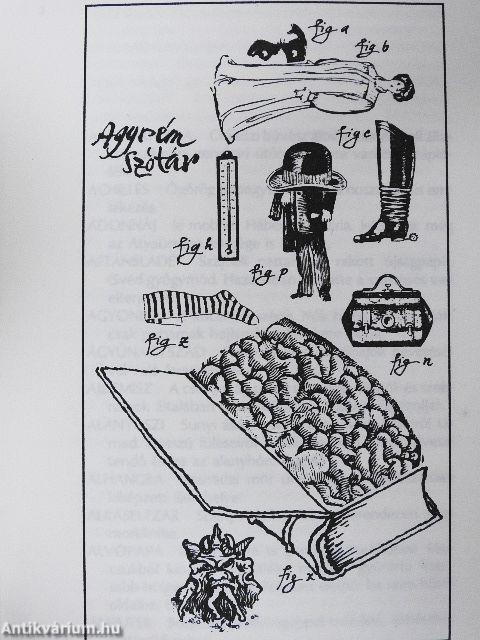 fig a
fig b
Agyrém
szótár
fig c
fig h
fig p
fig z
fig n
fig x
Antikvárium.hu